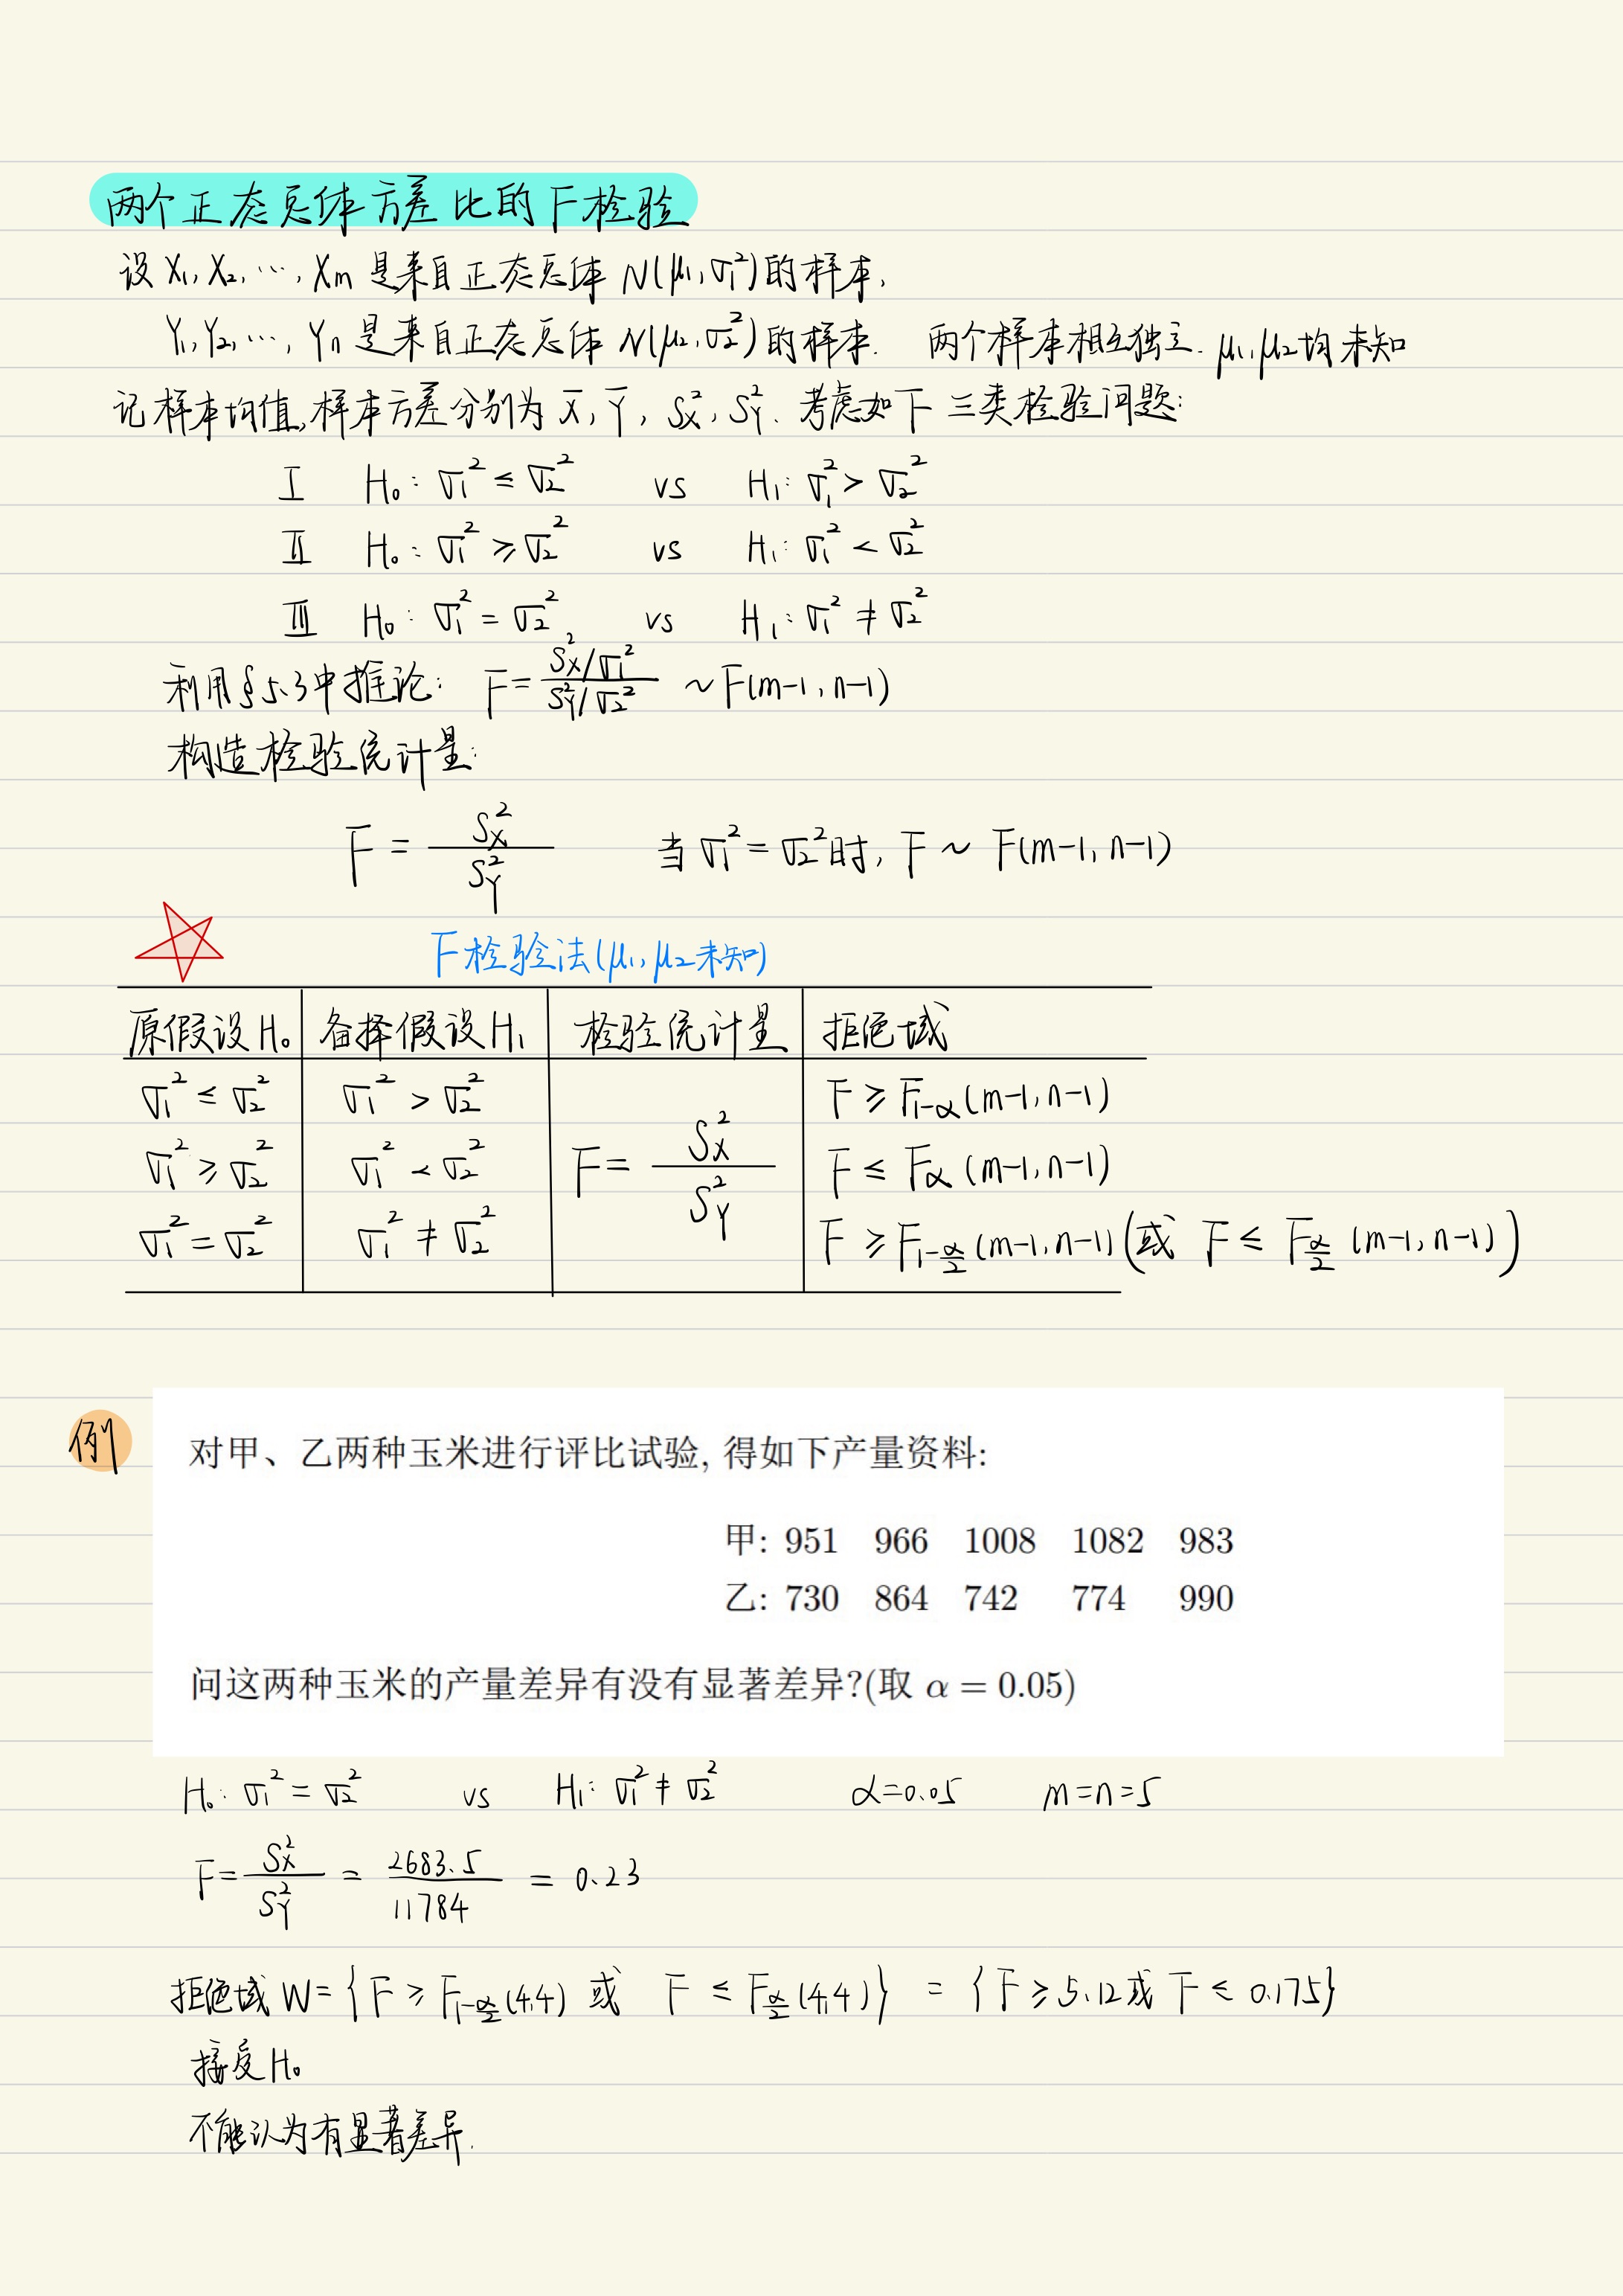 两个正态总体方差比的F检验
设 X₁, X₂, …, Xm 是来自正态总体 N(μ₁, σ₁²)的样本,
Y₁, Y₂, …, Yn 是来自正态总体 N(μ₂, σ₂²)的样本. 两个样本相互独立. μ₁, μ₂均未知
记样本均值,样本方差分别为 X̄, Ȳ, S_X², S_Y². 考虑如下三类检验问题:
I H₀: σ₁² ≤ σ₂² vs H₁: σ₁² > σ₂²
II H₀: σ₁² ≥ σ₂² vs H₁: σ₁² < σ₂²
III H₀: σ₁² = σ₂² vs H₁: σ₁² ≠ σ₂²
利用§5.3中推论: F = (S_X²/σ₁²)/(S_Y²/σ₂²) ~ F(m-1, n-1)
构造检验统计量:
F = S_X²/S_Y² 当 σ₁² = σ₂²时, F ~ F(m-1, n-1)
F检验法(μ₁, μ₂未知)
原假设H₀ 备择假设H₁ 检验统计量 拒绝域
σ₁² ≤ σ₂² σ₁² > σ₂² F ≥ F_{1-α}(m-1, n-1)
σ₁² ≥ σ₂² σ₁² < σ₂² F = S_X²/S_Y² F ≤ F_α(m-1, n-1)
σ₁² = σ₂² σ₁² ≠ σ₂² F ≥ F_{1-α/2}(m-1, n-1) (或 F ≤ F_{α/2}(m-1, n-1))
例
对甲、乙两种玉米进行评比试验, 得如下产量资料:
甲: 951 966 1008 1082 983
乙: 730 864 742 774 990
问这两种玉米的产量差异有没有显著差异?(取 α = 0.05)
H₀: σ₁² = σ₂² vs H₁: σ₁² ≠ σ₂² α=0.05 m=n=5
F = S_X²/S_Y² = 2683.5/11784 = 0.23
拒绝域 W = {F ≥ F_{1-α/2}(4,4) 或 F ≤ F_{α/2}(4,4)} = {F ≥ 5.12 或 F ≤ 0.175}
接受H₀
不能认为有显著差异.